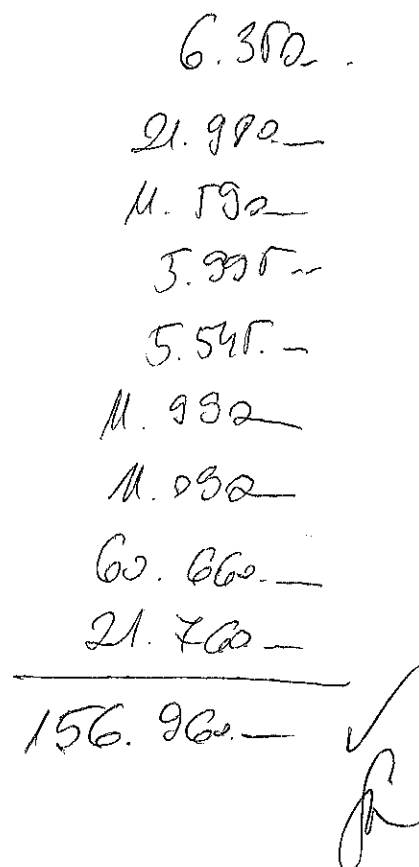 6.350.-
21.980.-
11.590.-
5.995.-
5.545.-
11.990.-
11.090.-
60.660.-
21.760.-
156.960.- ✓